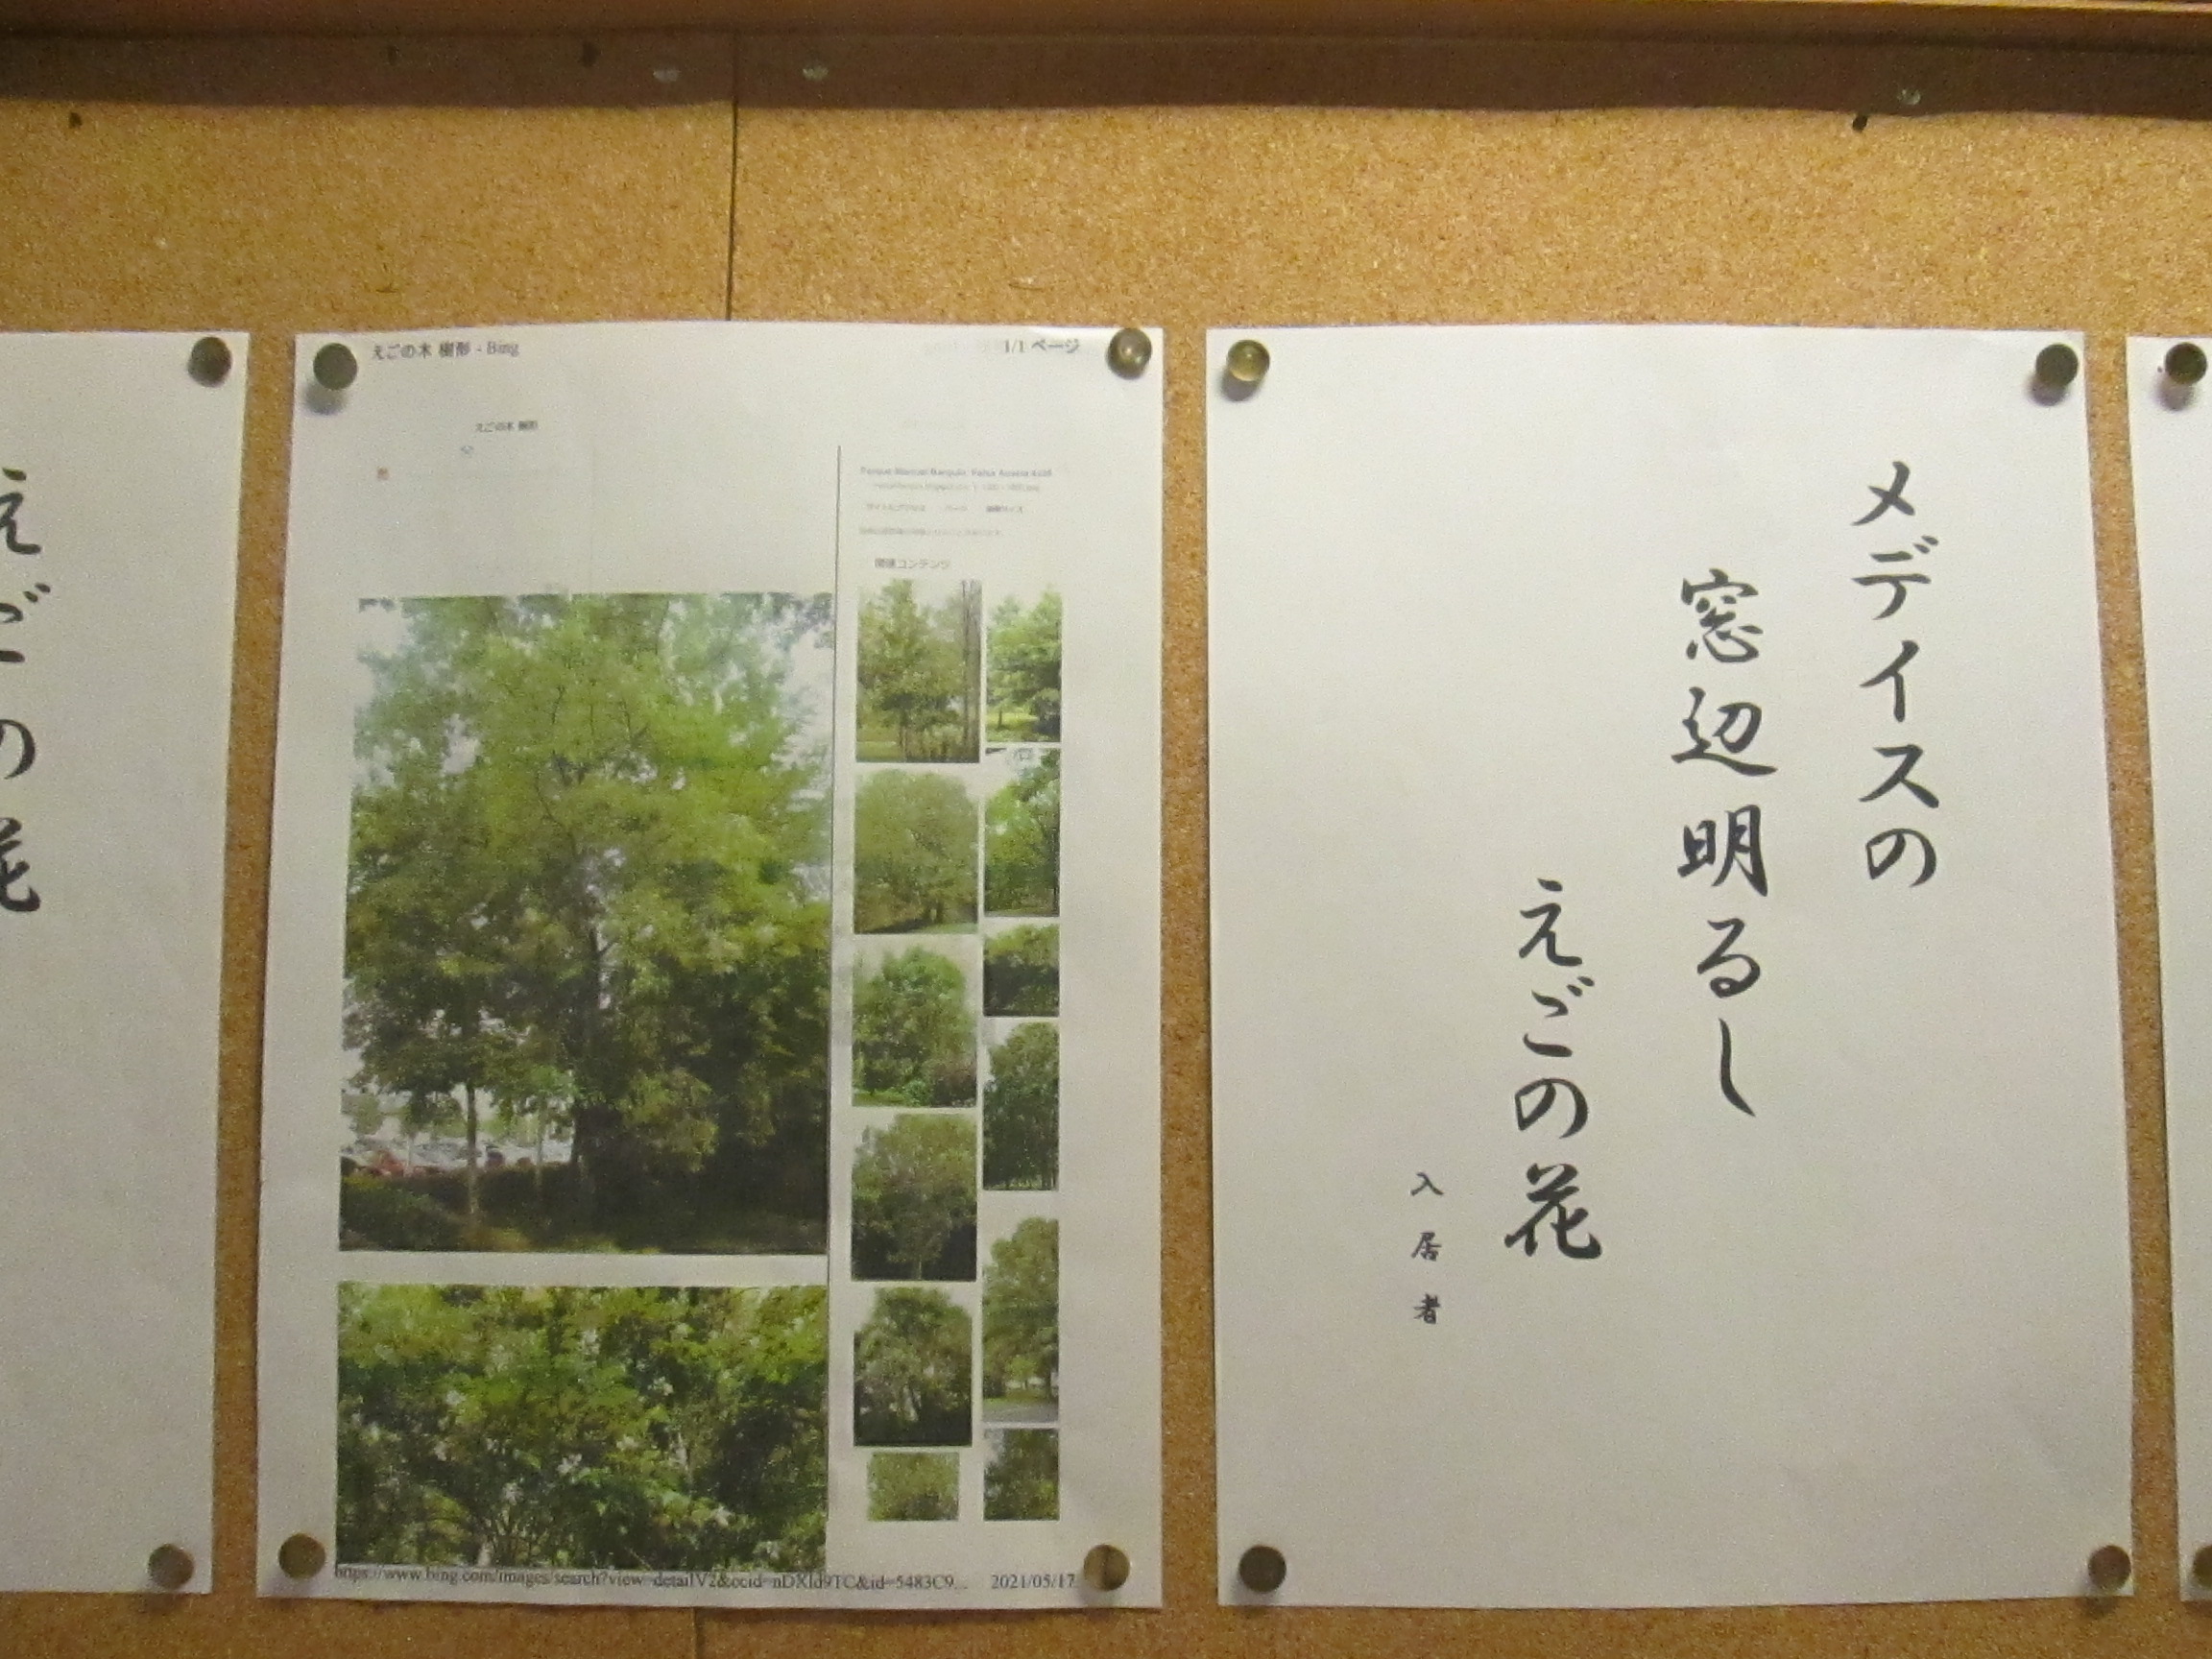 えごの花
えごの木 樹形 - Bing
1/1 ページ
えごの木 樹形
関連コンテンツ
https://www.bing.com/images/search?view=detailV2&ccid=nDXld9TC&id=5483C9...
2021/05/17
メデイスの
窓辺明るし
えごの花
入居者